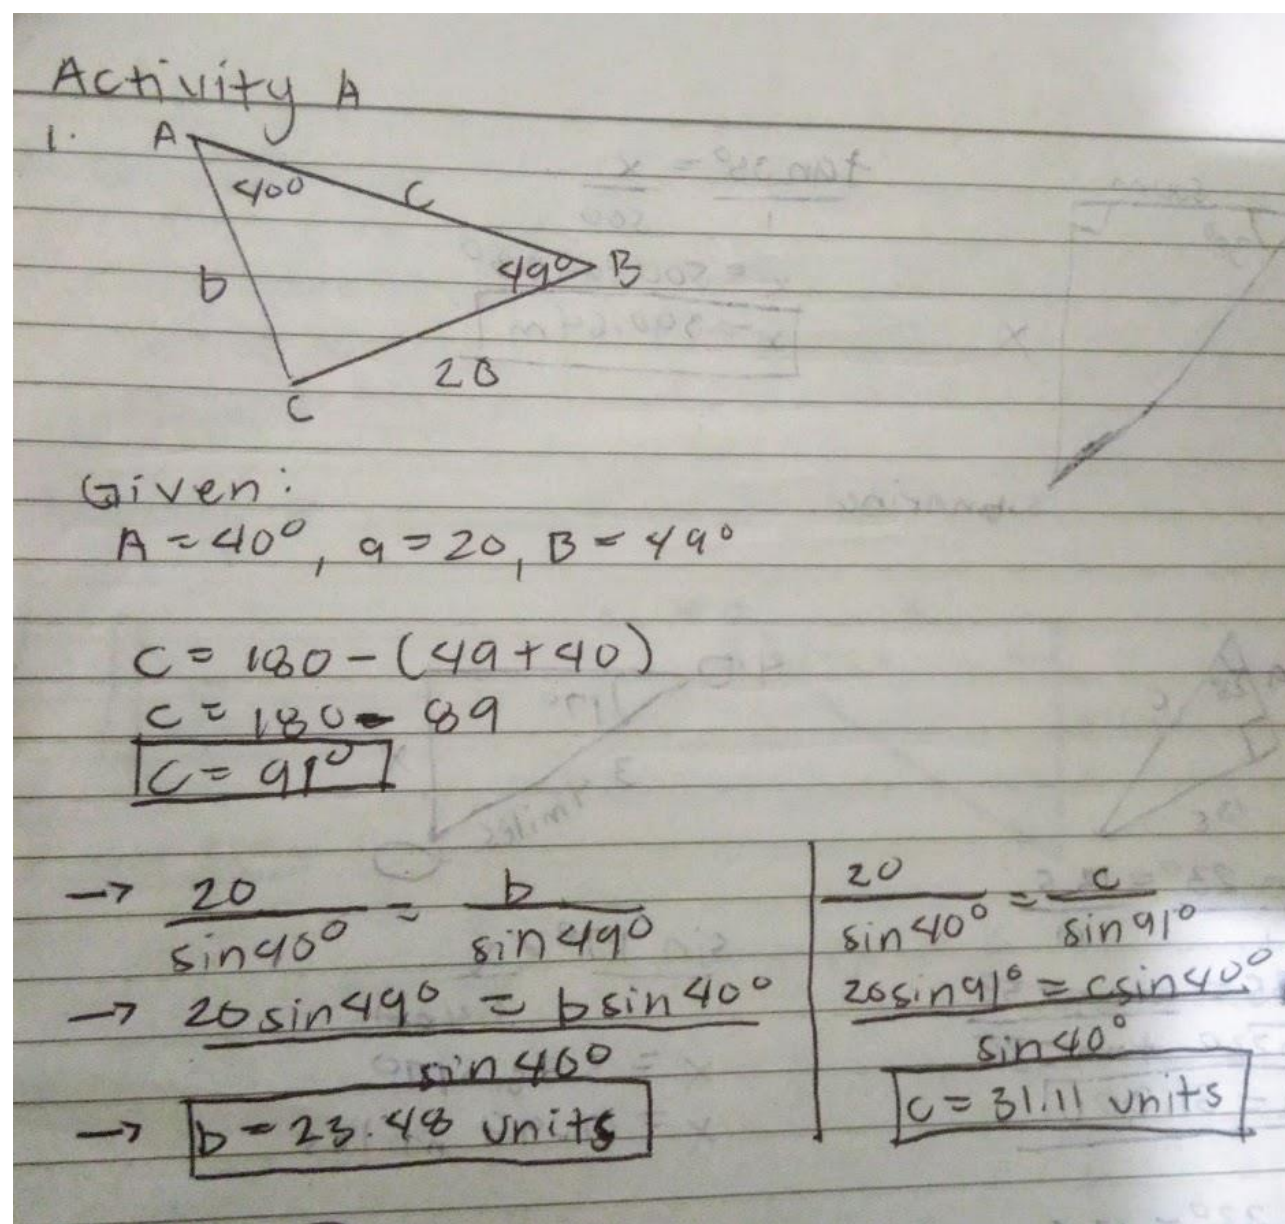 Activity A
1.
A
40°
c
b
49° B
20
C
Given:
A = 40°, a = 20, B = 49°
C = 180 - (49 + 40)
C = 180 - 89
C = 91°
→ 20 / sin 40° = b / sin 49°
→ 20 sin 49° = b sin 40°
sin 40°
→ b = 23.48 units
20 / sin 40° = c / sin 91°
20 sin 91° = c sin 40°
sin 40°
c = 31.11 units